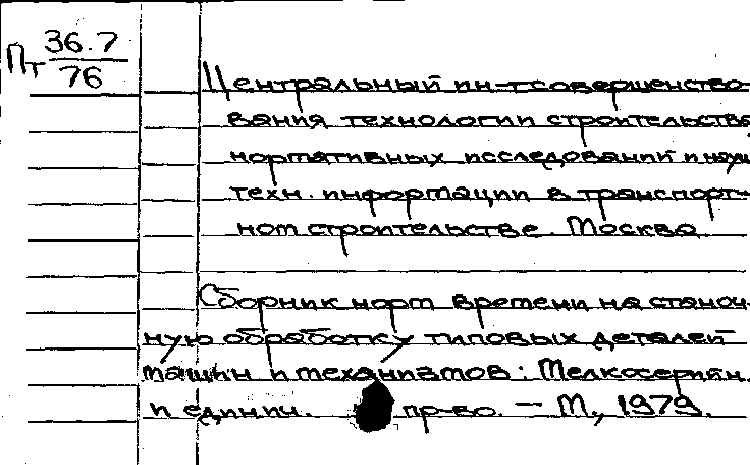 Пт 36.7
76
Центральный ин-т совершенство
вания технологии строительства
нормативных исследований и науч
техн. информации в транспорт-
ном строительстве. Москва.
Сборник норм времени на станоч
ную обработку типовых деталей
машин и механизмов: Мелкосерийн.
и единич. пр-во. — М., 1979.